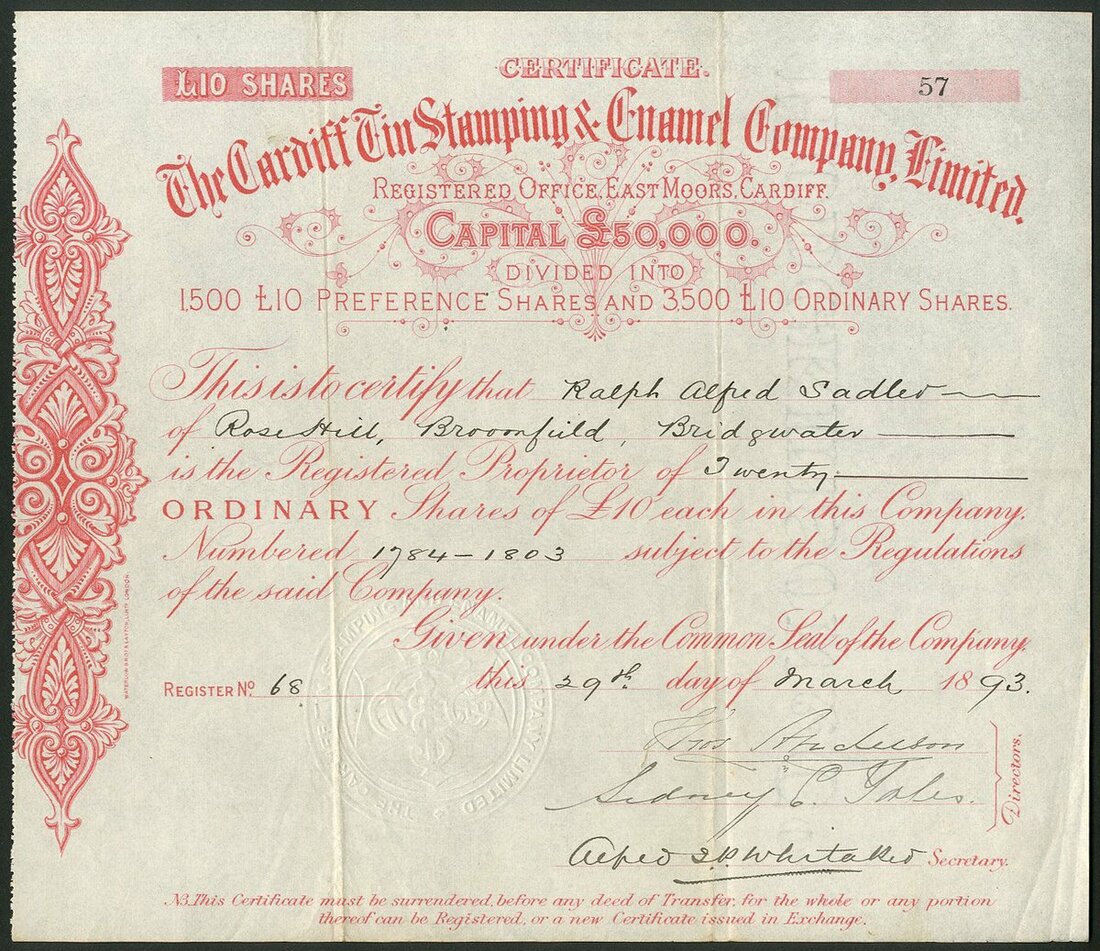 £10 SHARES
CERTIFICATE.
57
The Cardiff Tin Stamping & Enamel Company, Limited.
REGISTERED OFFICE, EAST MOORS, CARDIFF.
CAPITAL £50,000.
DIVIDED INTO
1,500 £10 PREFERENCE SHARES AND 3,500 £10 ORDINARY SHARES.
This is to certify that Ralph Alfred Sadler
of Rose Hill, Broomfield, Bridgwater
is the Registered Proprietor of Twenty
ORDINARY Shares of £10 each in this Company.
Numbered 1784-1803 subject to the Regulations
of the said Company.
Given under the Common Seal of the Company
REGISTER No 68 this 29th day of March 1893.
Thos Anderson
Sidney C.
Directors.
Alfred Whitaker Secretary.
N3. This Certificate must be surrendered, before any deed of Transfer, for the whole or any portion
thereof can be Registered, or a new Certificate issued in Exchange.
WATERLOW BROS & LAYTON, LIMTD, LONDON.
STAMPING AND ENAMEL COMPANY LIMITED